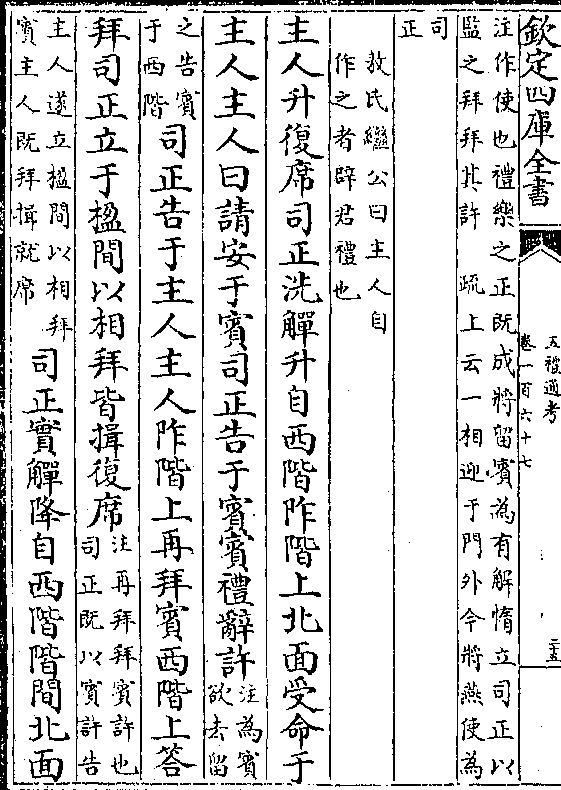 欽定四庫全書
五禮通考
卷一百六十七
二十五
注作使也禮樂之正既成將留賓為有解惰立司正以
監之拜拜其許　疏上云一相迎于門外今將燕使為
司正
敖氏繼公曰主人自
作之者辟君禮也
主人升復席司正洗觶升自西階阼階上北面受命于
主人主人曰請安于賓司正告于賓賓禮辭許注為賓
欲去留
之告賓
于西階司正告于主人主人阼階上再拜賓西階上答
拜司正立于楹間以相拜皆揖復席注再拜拜賓許也
司正既以賓許告
主人遂立楹間以相拜
賓主人既拜揖就席司正實觶降自西階階間北面